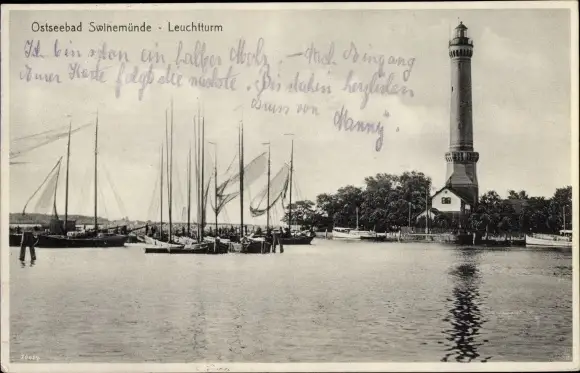 Ostseebad Swinemünde - Leuchtturm
Ich bin schon ein halber Mohr. – Nach Eingang
einer Karte folgt die nächste. Bis dahin herzlichen
Gruss von
"Nanny".